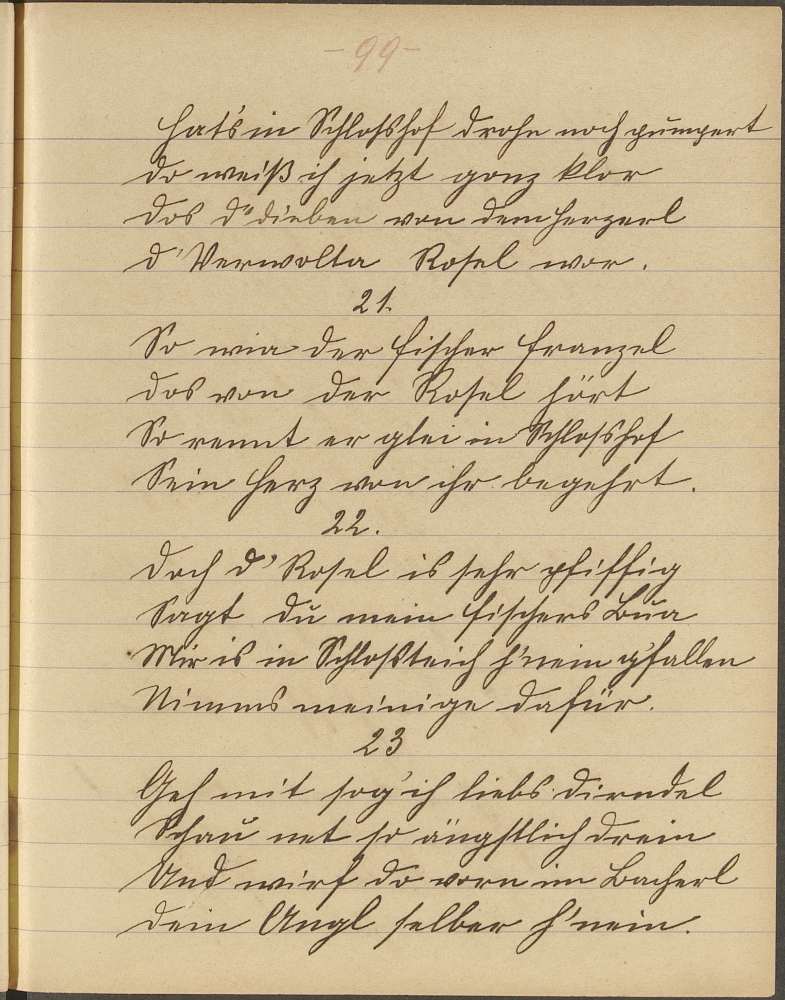 - 99 -
Hat's in Schlosshof drohn noch pumpert
do weiß ich jetzt gonz klor
Dos d' dieben von dem Herzerl
d' Verwolta Rosel wor.
21.
So wia der Fischer Franzel
dos von der Rosel hört
So rennt er glei in Schlosshof
Sein Herz von ihr begehrt.
22.
Doch d' Rosel is sehr pfiffig
Sagt du mein Fischers Bua
Mir is in Schloßteich h'nein g'fallen
Nimms meinige dafür.
23
Geh mit sog' ich liebs Dirndel
Schau net so ängstlich drein
Und wirf do vorn im Bacherl
Dein Angl selber h'nein.